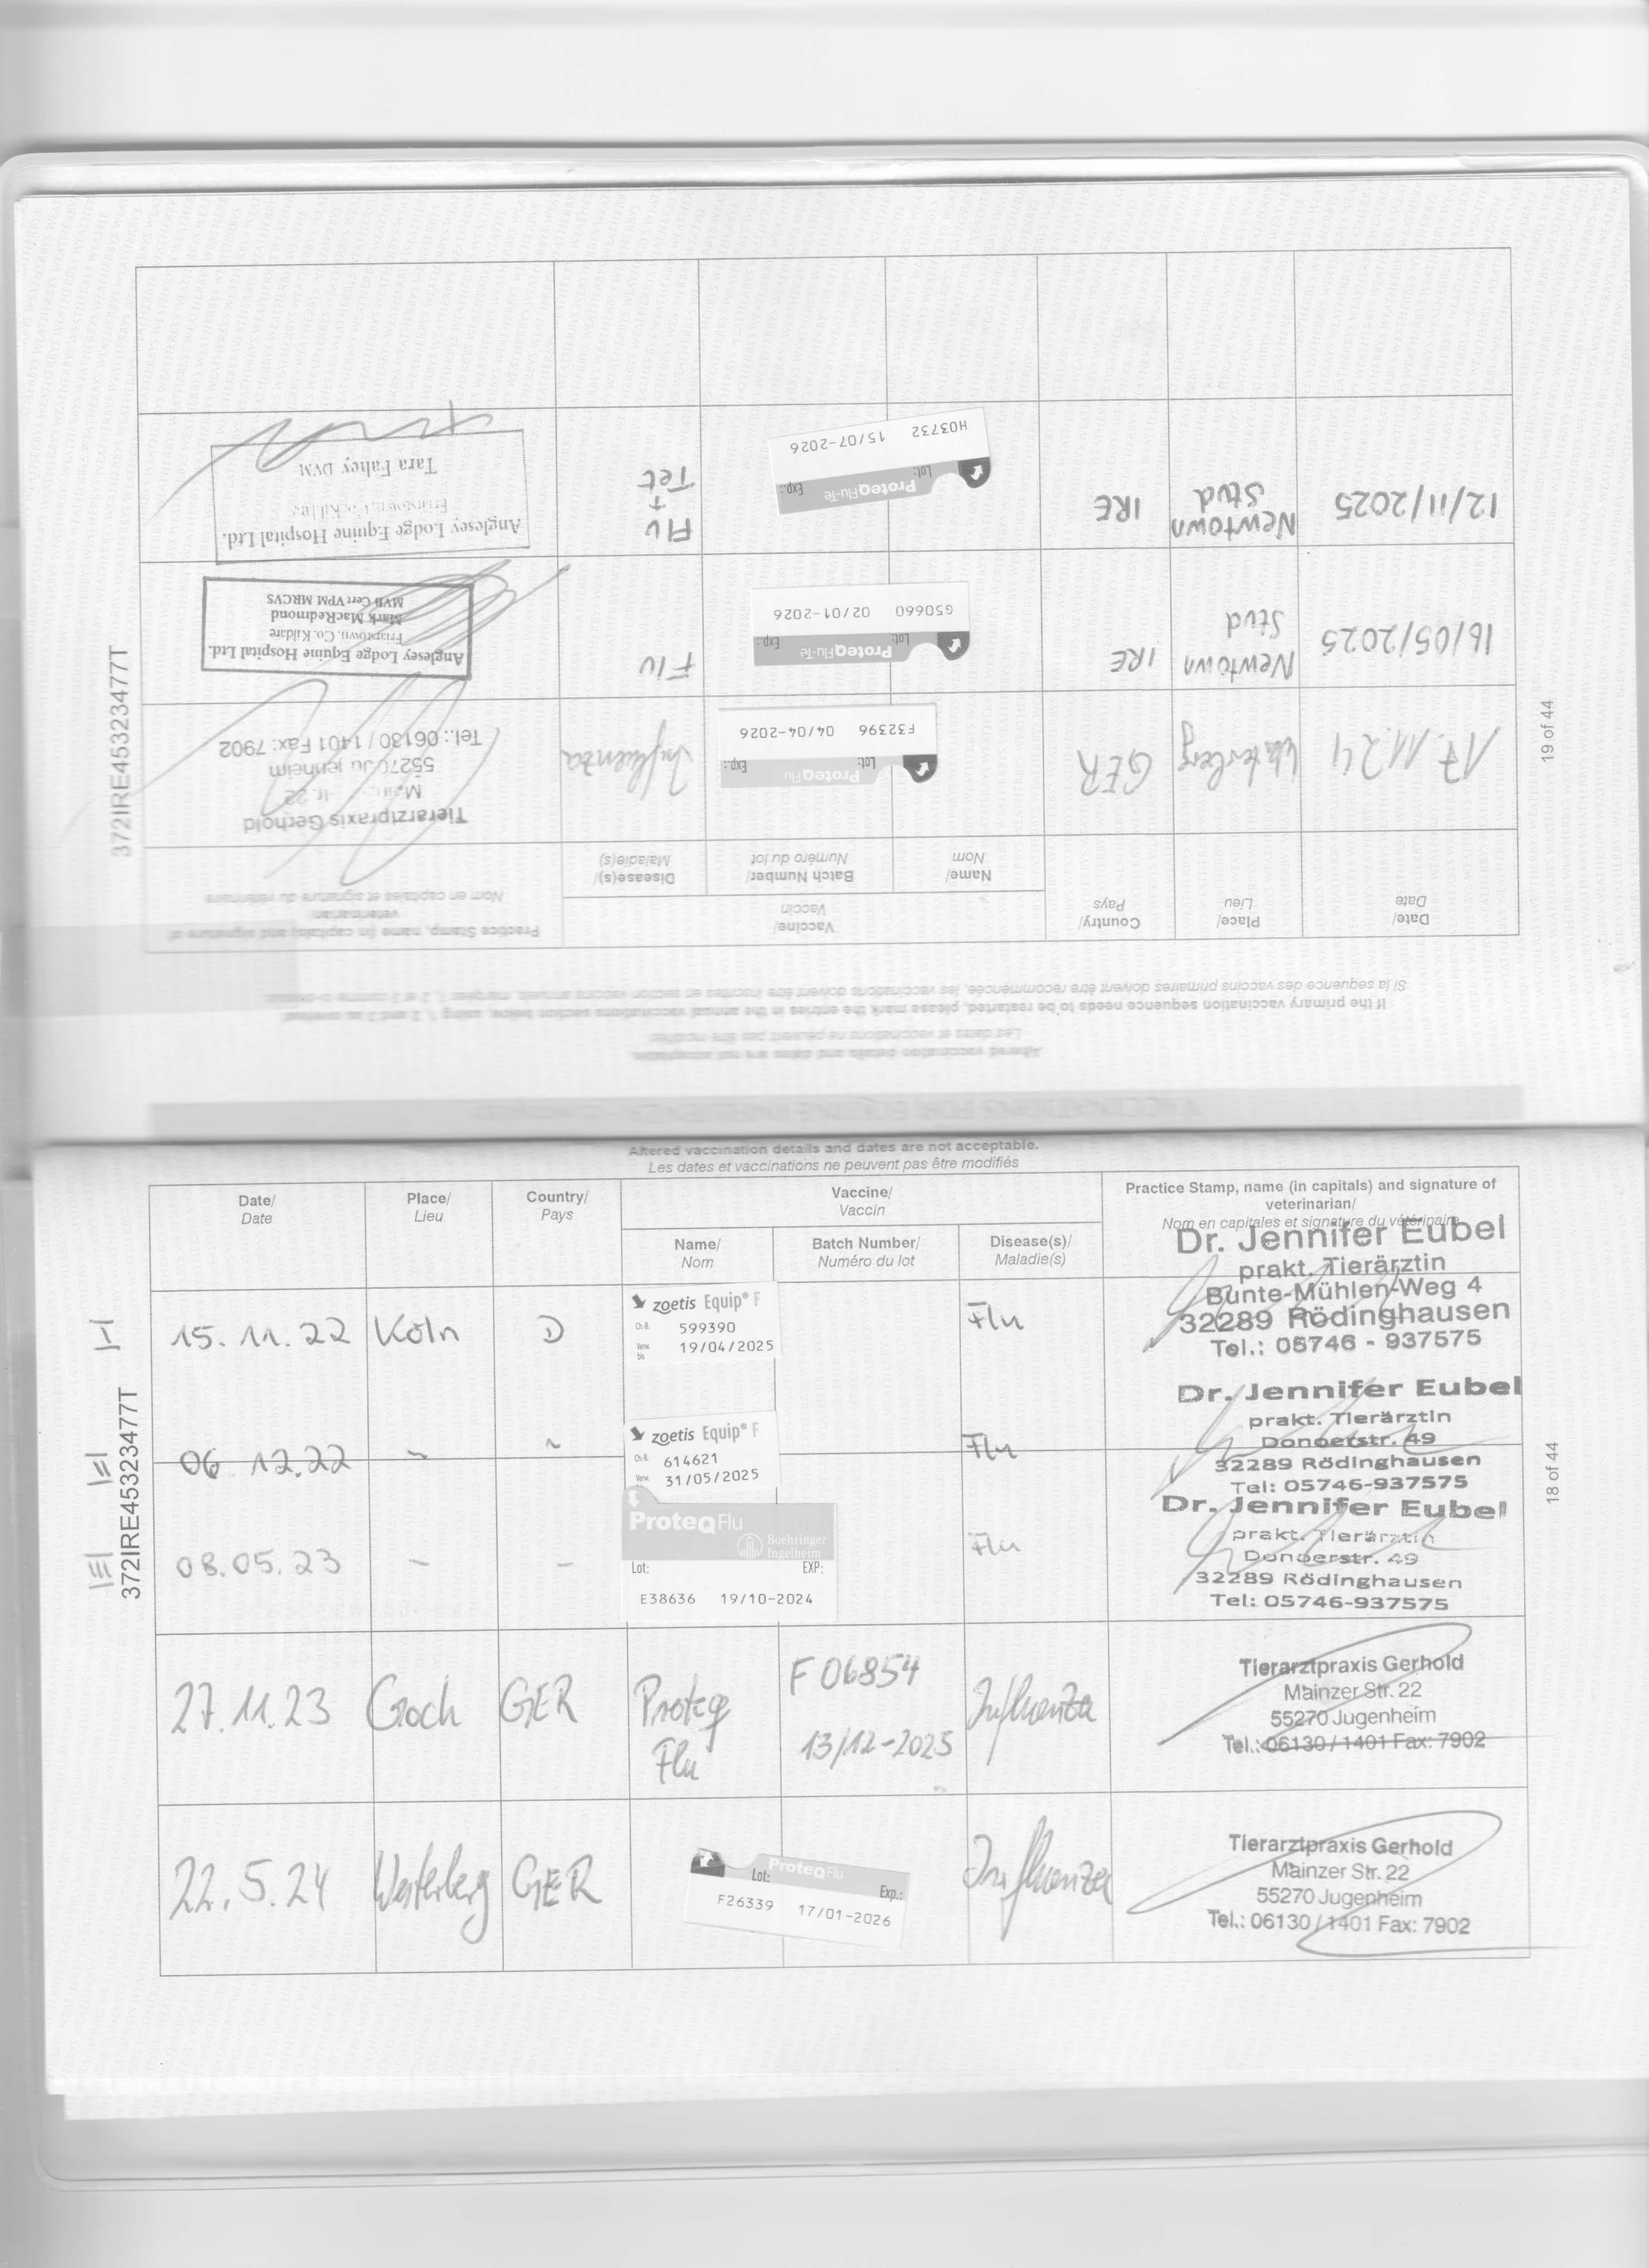 Altered vaccination details and dates are not acceptable.
Les dates et vaccinations ne peuvent pas être modifiés
Date/
Date
Place/
Lieu
Country/
Pays
Vaccine/
Vaccin
Name/
Nom
Batch Number/
Numéro du lot
Disease(s)/
Maladie(s)
Practice Stamp, name (in capitals) and signature of
veterinarian/
Nom en capitales et signature du vétérinaire
15.11.22 Köln D
zoetis Equip® F
Ch.-B. 599390
Verw. bis 19/04/2025
Flu
Dr. Jennifer Eubel
prakt. Tierärztin
Bunte-Mühlen-Weg 4
32289 Rödinghausen
Tel.: 05746 - 937575
06.12.22 ~ ~
zoetis Equip® F
Ch.-B. 614621
Verw. 31/05/2025
Flu
Dr. Jennifer Eubel
prakt. Tierärztin
Donoerstr. 49
32289 Rödinghausen
Tel: 05746-937575
08.05.23 – –
ProteqFlu
Boehringer
Ingelheim
Lot: EXP:
E38636 19/10-2024
Flu
Dr. Jennifer Eubel
prakt. Tierärztin
Donoerstr. 49
32289 Rödinghausen
Tel: 05746-937575
27.11.23 Goch GER
Proteq
Flu
F06854
13/12-2025
Influenza
Tierarztpraxis Gerhold
Mainzer Str. 22
55270 Jugenheim
Tel.: 06130/1401 Fax: 7902
22.5.24 Westerberg GER
ProteqFlu
Lot: Exp.:
F26339 17/01-2026
Influenza
Tierarztpraxis Gerhold
Mainzer Str. 22
55270 Jugenheim
Tel.: 06130/1401 Fax: 7902
I
II
III
372IRE45323477T
18 of 44
VACCINATIONS FOR EQUINE INFLUENZA
Altered vaccination details and dates are not acceptable.
Les dates et vaccinations ne peuvent pas être modifiés
If the primary vaccination sequence needs to be restarted, please mark the entries in the annual vaccinations section below, using 1, 2 and 3 as overleaf
Si la séquence des vaccins primaires doivent être recommencée, les vaccinations doivent être inscrites en section vaccins annuels, marquées 1, 2 et 3 comme ci-dessus
Date/
Date
Place/
Lieu
Country/
Pays
Vaccine/
Vaccin
Name/
Nom
Batch Number/
Numéro du lot
Disease(s)/
Maladie(s)
Practice Stamp, name (in capitals) and signature of
veterinarian/
Nom en capitales et signature du vétérinaire
17.11.24 GER
ProteqFlu
Lot: Exp.:
F32396 04/04-2026
Influenza
Tierarztpraxis Gerhold
55270 Jugenheim
Tel.: 06130/1401 Fax: 7902
16/05/2025
Newtown
Stud
IRE
ProteqFlu-Te
Lot: Exp.:
G50660 02/01-2026
Flu
Anglesey Lodge Equine Hospital Ltd.
Friarstown, Co. Kildare
Mark MacRedmond
MVB Cert VPM MRCVS
12/11/2025
Newtown
Stud
IRE
ProteqFlu-Te
Lot: Exp.:
H03732 15/07-2026
Flu
+
Tet
Anglesey Lodge Equine Hospital Ltd.
Friarstown, Co. Kildare
Tara Fahey DVM
372IRE45323477T
19 of 44